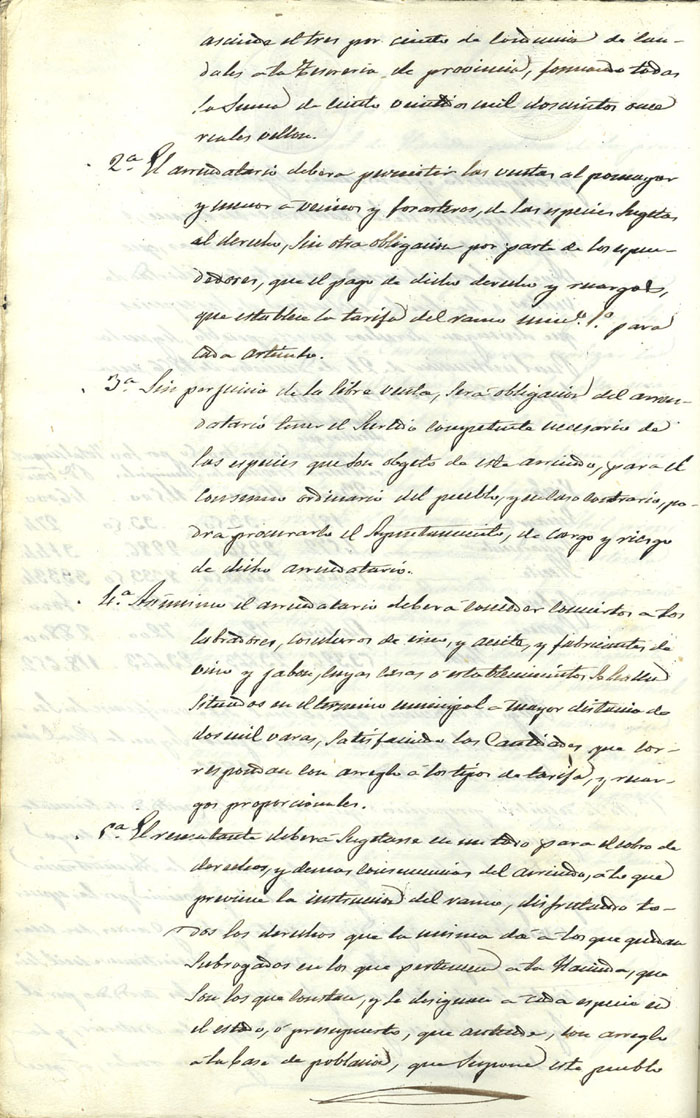 asciende el tres por ciento de conducion de cau-
dales a la Tesoreria de provincia, formando todas
la Suma de ciento veintidos mil doscientos once
reales vellon.
2ª El arrendatario debera permitir las ventas al pormayor
y menor a vecinos y forasteros, de las especies Sugetas
al derecho, Sin otra obligacion por parte de los espen-
dedores, que el pago de dicho derecho y recargos,
que establece la tarifa del ramo num.º 1.º para
cada articulo.
3ª Sin perjuicio de la libre venta, Será obligacion del arren-
datario tener el Surtido competente necesario de
las especies que Son obgeto de este arriendo, para el
consumo ordinario del pueblo, y en caso contrario, po-
dra procurarlo el Ayuntamiento, de cargo y riesgo
de dicho arrendatario.
4.ª Asimismo el arrendatario deberá conceder conciertos a los
labradores, cosecheros de vino, y aceite, y fabricantes de
vino y jabon, cuyas casas ó establecimientos Se hallen
Situados en el termino municipal a mayor distancia de
dos mil varas, Satisfaciendo las Cantidades que cor-
respondan con arreglo á los tipos de tarifa, y recar-
gos proporcionales.
5ª El rematante deberá Sugetarse en un todo para el cobro de
derechos, y demas consecuencias del arriendo, á lo que
previene la instruccion del ramo, disfrutando to-
dos los derechos que la misma dá á los que quedan
Subrogados en los que pertenecen a la Hacienda, que
Son los que constan, y se designan a cada especie en
el estado, ó presupuesto, que antecede, con arreglo
a la base de poblacion, que Supone este pueblo